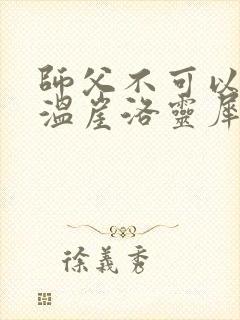 師父不可以
溫崖洛靈犀
徐義秀